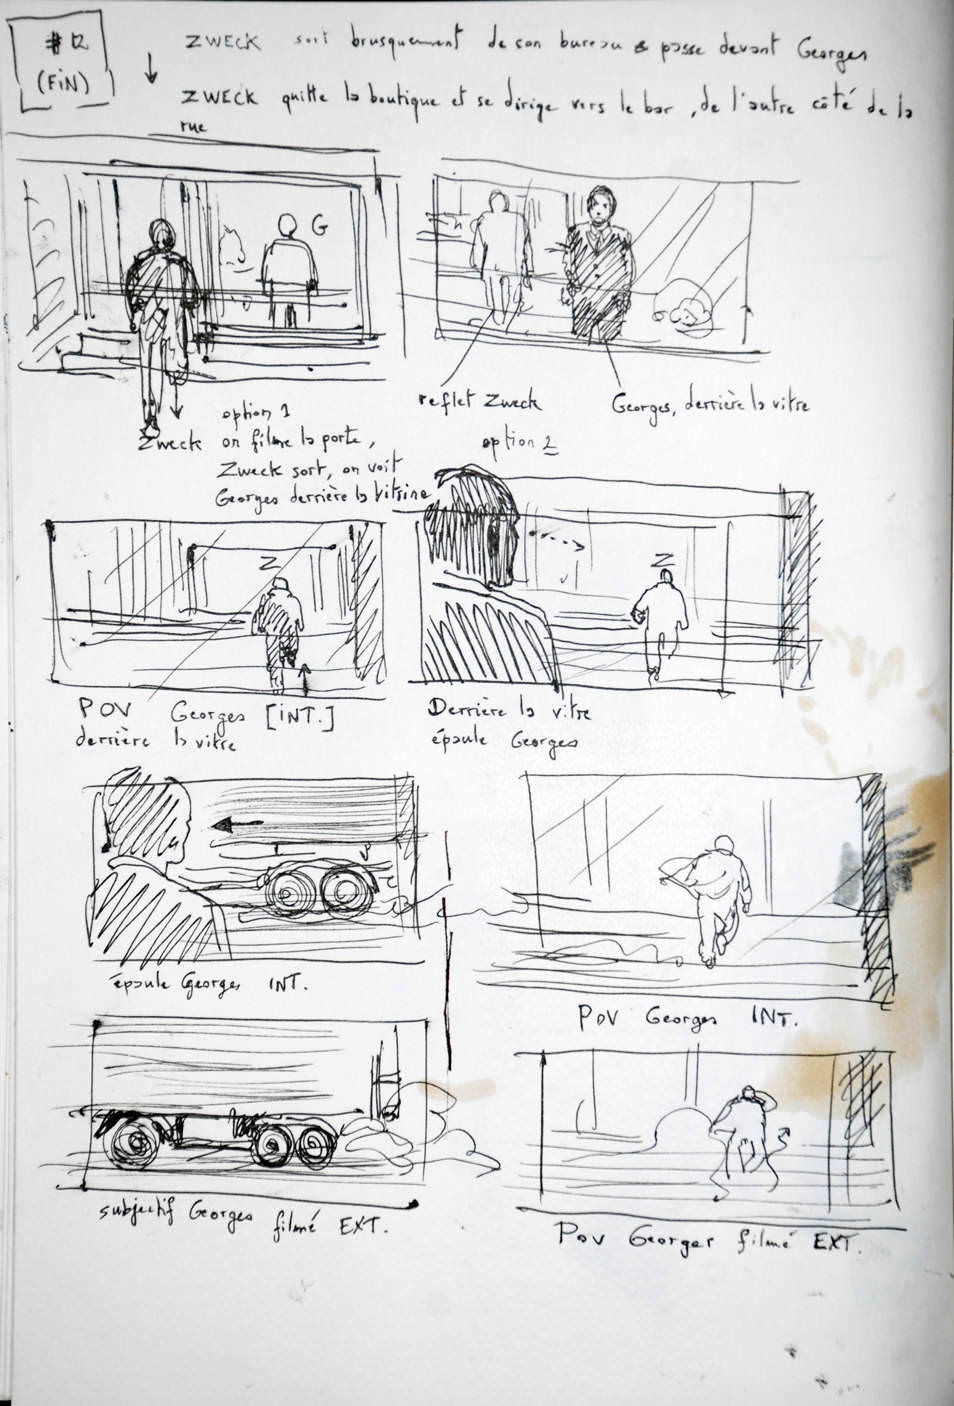 # 12
(FiN)
ZWECK sort brusquement de son bureau & passe devant Georges
ZWECK quitte la boutique et se dirige vers le bar, de l'autre côté de la
rue
G
option 1
Zweck on filme la porte,
Zweck sort, on voit
Georges derrière la vitrine
reflet Zweck
Georges, derrière la vitre
option 2
Z
POV Georges [iNT.]
derrière la vitre
Z
Derrière la vitre
épaule Georges
épaule Georges INT.
POV Georges INT.
subjectif Georges filmé EXT.
POV Georges filmé EXT.